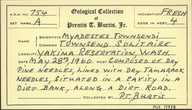 Oological Collection
of
Perrin E. Burtis, Jr.
A.O.U. NO. 754 FRESH
SET NO. A 4
Name Myadestes Townsendi
Townsend Solitaire
Yakima Reservation, Wash.
May 28th, 1960 — Composed of dry
pine needles, lined with dry tamarack
needles, situated in a cavity in a
dirt bank, along a dirt road.
P. Burtis